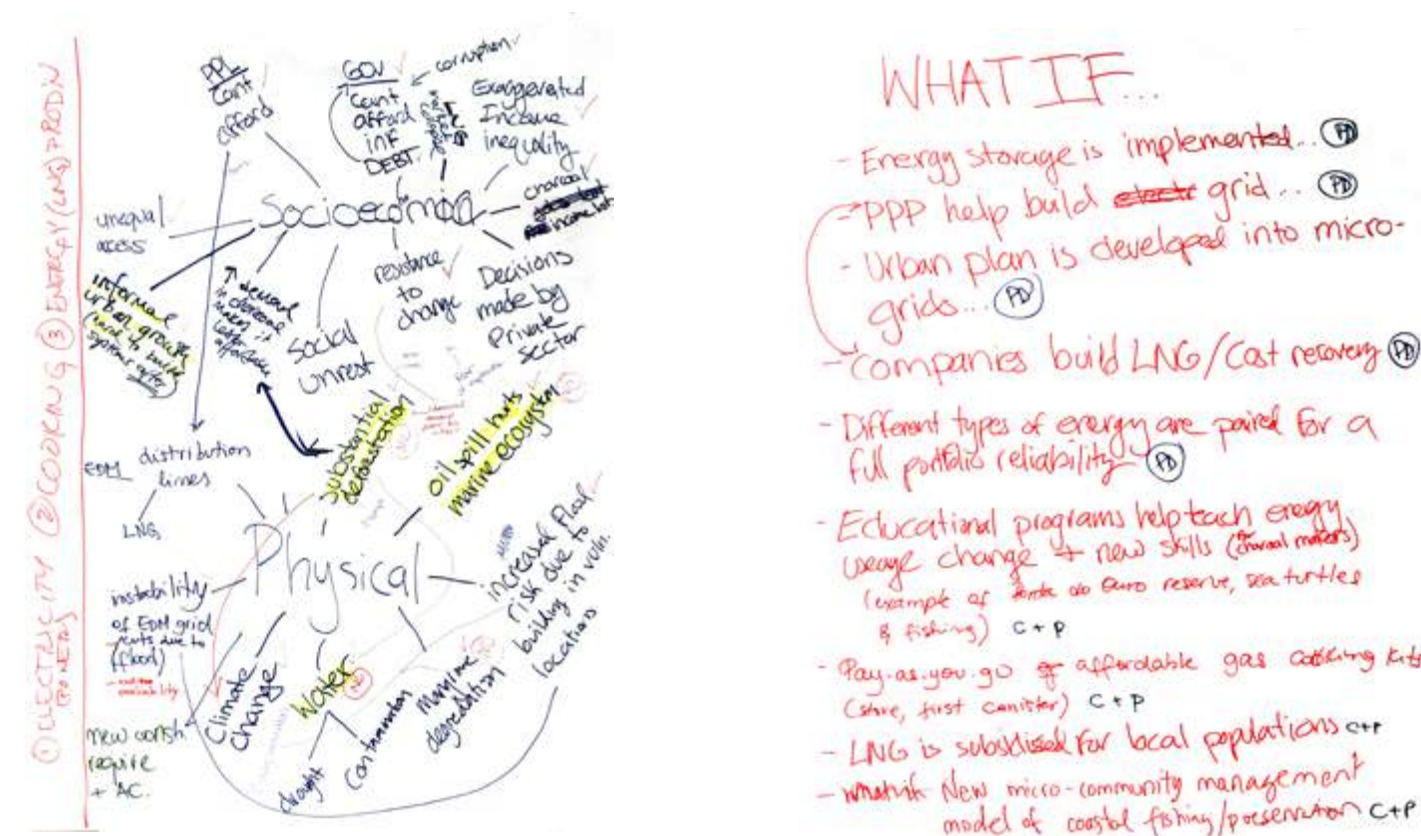 ① ELECTRICITY ② COOKING ③ ENERGY (LNG) PRODN
PPL
Cant
afford
GOV
corruption
Cant
afford
inf
DEBT
Exaggerated
Income
inequality
charcoal
Socioeconomic
unequal
access
informal
urban growth
(hard to build
systems after)
demand
makes it
Social
unrest
resistance
to
change
Decisions
made by
Private
Sector
Substantial
deforestation
oil spill hurts
marine ecosystem
EDM distribution
lines
LNG
Physical
instability
of EDM grid
cuts due to
(flood)
availability
new const.
require
+ AC.
Climate
change
Water
drought
Contamination
Mangrove
degradation
increased flood
risk due to
building in vuln.
locations
WHAT IF...
- Energy storage is implemented.. PD
- PPP help build grid... PD
- Urban plan is developed into micro-
grids... PD
- Companies build LNG/Cost recovery PD
- Different types of energy are paired for a
full portfolio reliability PD
- Educational programs help teach energy
useage change + new skills (charcoal makers)
(example of do ouro reserve, sea turtles
& fishing) C+P
- Pay-as-you-go affordable gas cooking kits
(stove, first canister) C+P
- LNG is subsidised for local populations C+P
- New micro-community management
model of coastal fishing/preservation C+P